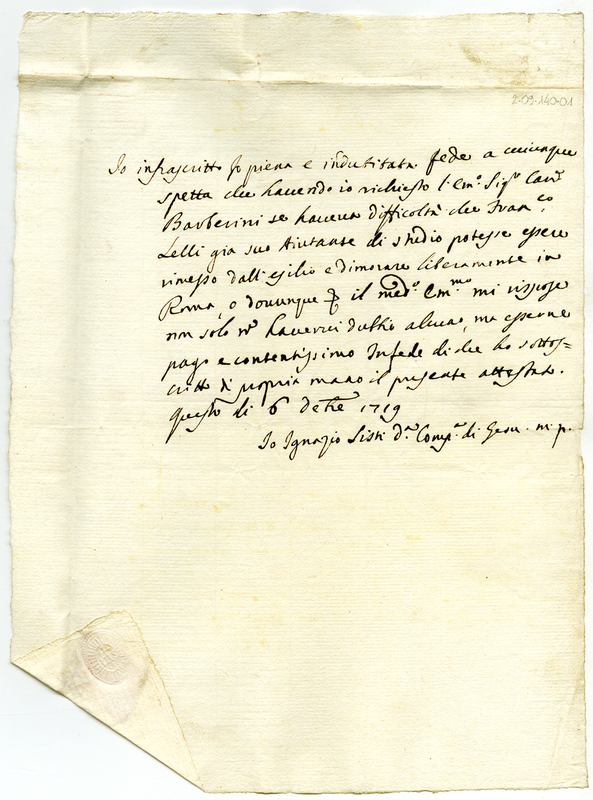 2-09-140-01
Io infrascritto fo piena e indubitata fede a chiunque
spetta che havendo io richiesto l'Em.º Sig.r Car.l
Barberini se haveva difficoltà che Fran.co
Lelli già suo Aiutante di studio potesse essere
rimesso dall'esilio e dimorare liberamente in
Roma, o dovunque il med.º Em.mo mi rispose
non solo nō haverci dubbio alcuno, ma esserne
pago e contentissimo In fede di che ho sottos=
critto di propria mano il presente attestato.
Questo dì 6 Xbre 1719
Io Ignazio Sisti d.a Comp.a di Gesu. m. p.